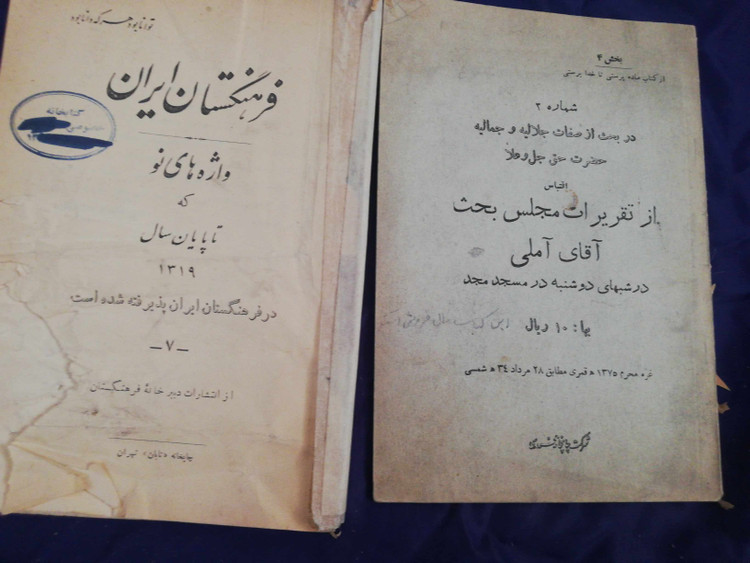 توانا بود هر که دانا بود
فرهنگستان ایران
کتابخانه
خصوصی
واژه های نو
که
تا پایان سال
۱۳۱۹
در فرهنگستان ایران پذیرفته شده است
-۷-
از انتشارات دبیرخانهٔ فرهنگستان
چاپخانه «تابان» تهران
بخش ۴
از کتاب ماده پرستی تا خدا پرستی
شماره ۲
در بحث از صفات جلالیه و جمالیه
حضرت حق جل و علا
اقتباس
از تقریرات مجلس بحث
آقای آملی
در شبهای دوشنبه در مسجد مجد
بها: ۱۰ ریال
این کتاب
غره محرم ۱۳۷۵ ه قمری مطابق ۲۸ مرداد ۳۴ ه شمسی